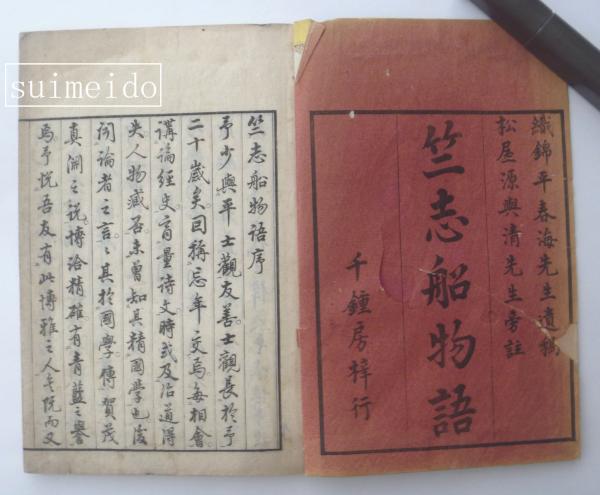 suimeido
織錦平春海先生遺稿
松屋源與清先生旁註
竺志船物語
千鍾房梓行
竺志船物語序
予少與平士觀友善士觀長於予
二十歲矣因稱忘年交焉每相會
講論經史商量詩文時或及治道得
失人物臧否未曾知其精國學也後
聞論者之言言其於國學傳賀茂
真淵之説博洽精確有青藍之譽
焉予悦吾友有此博雅之人矣既而又